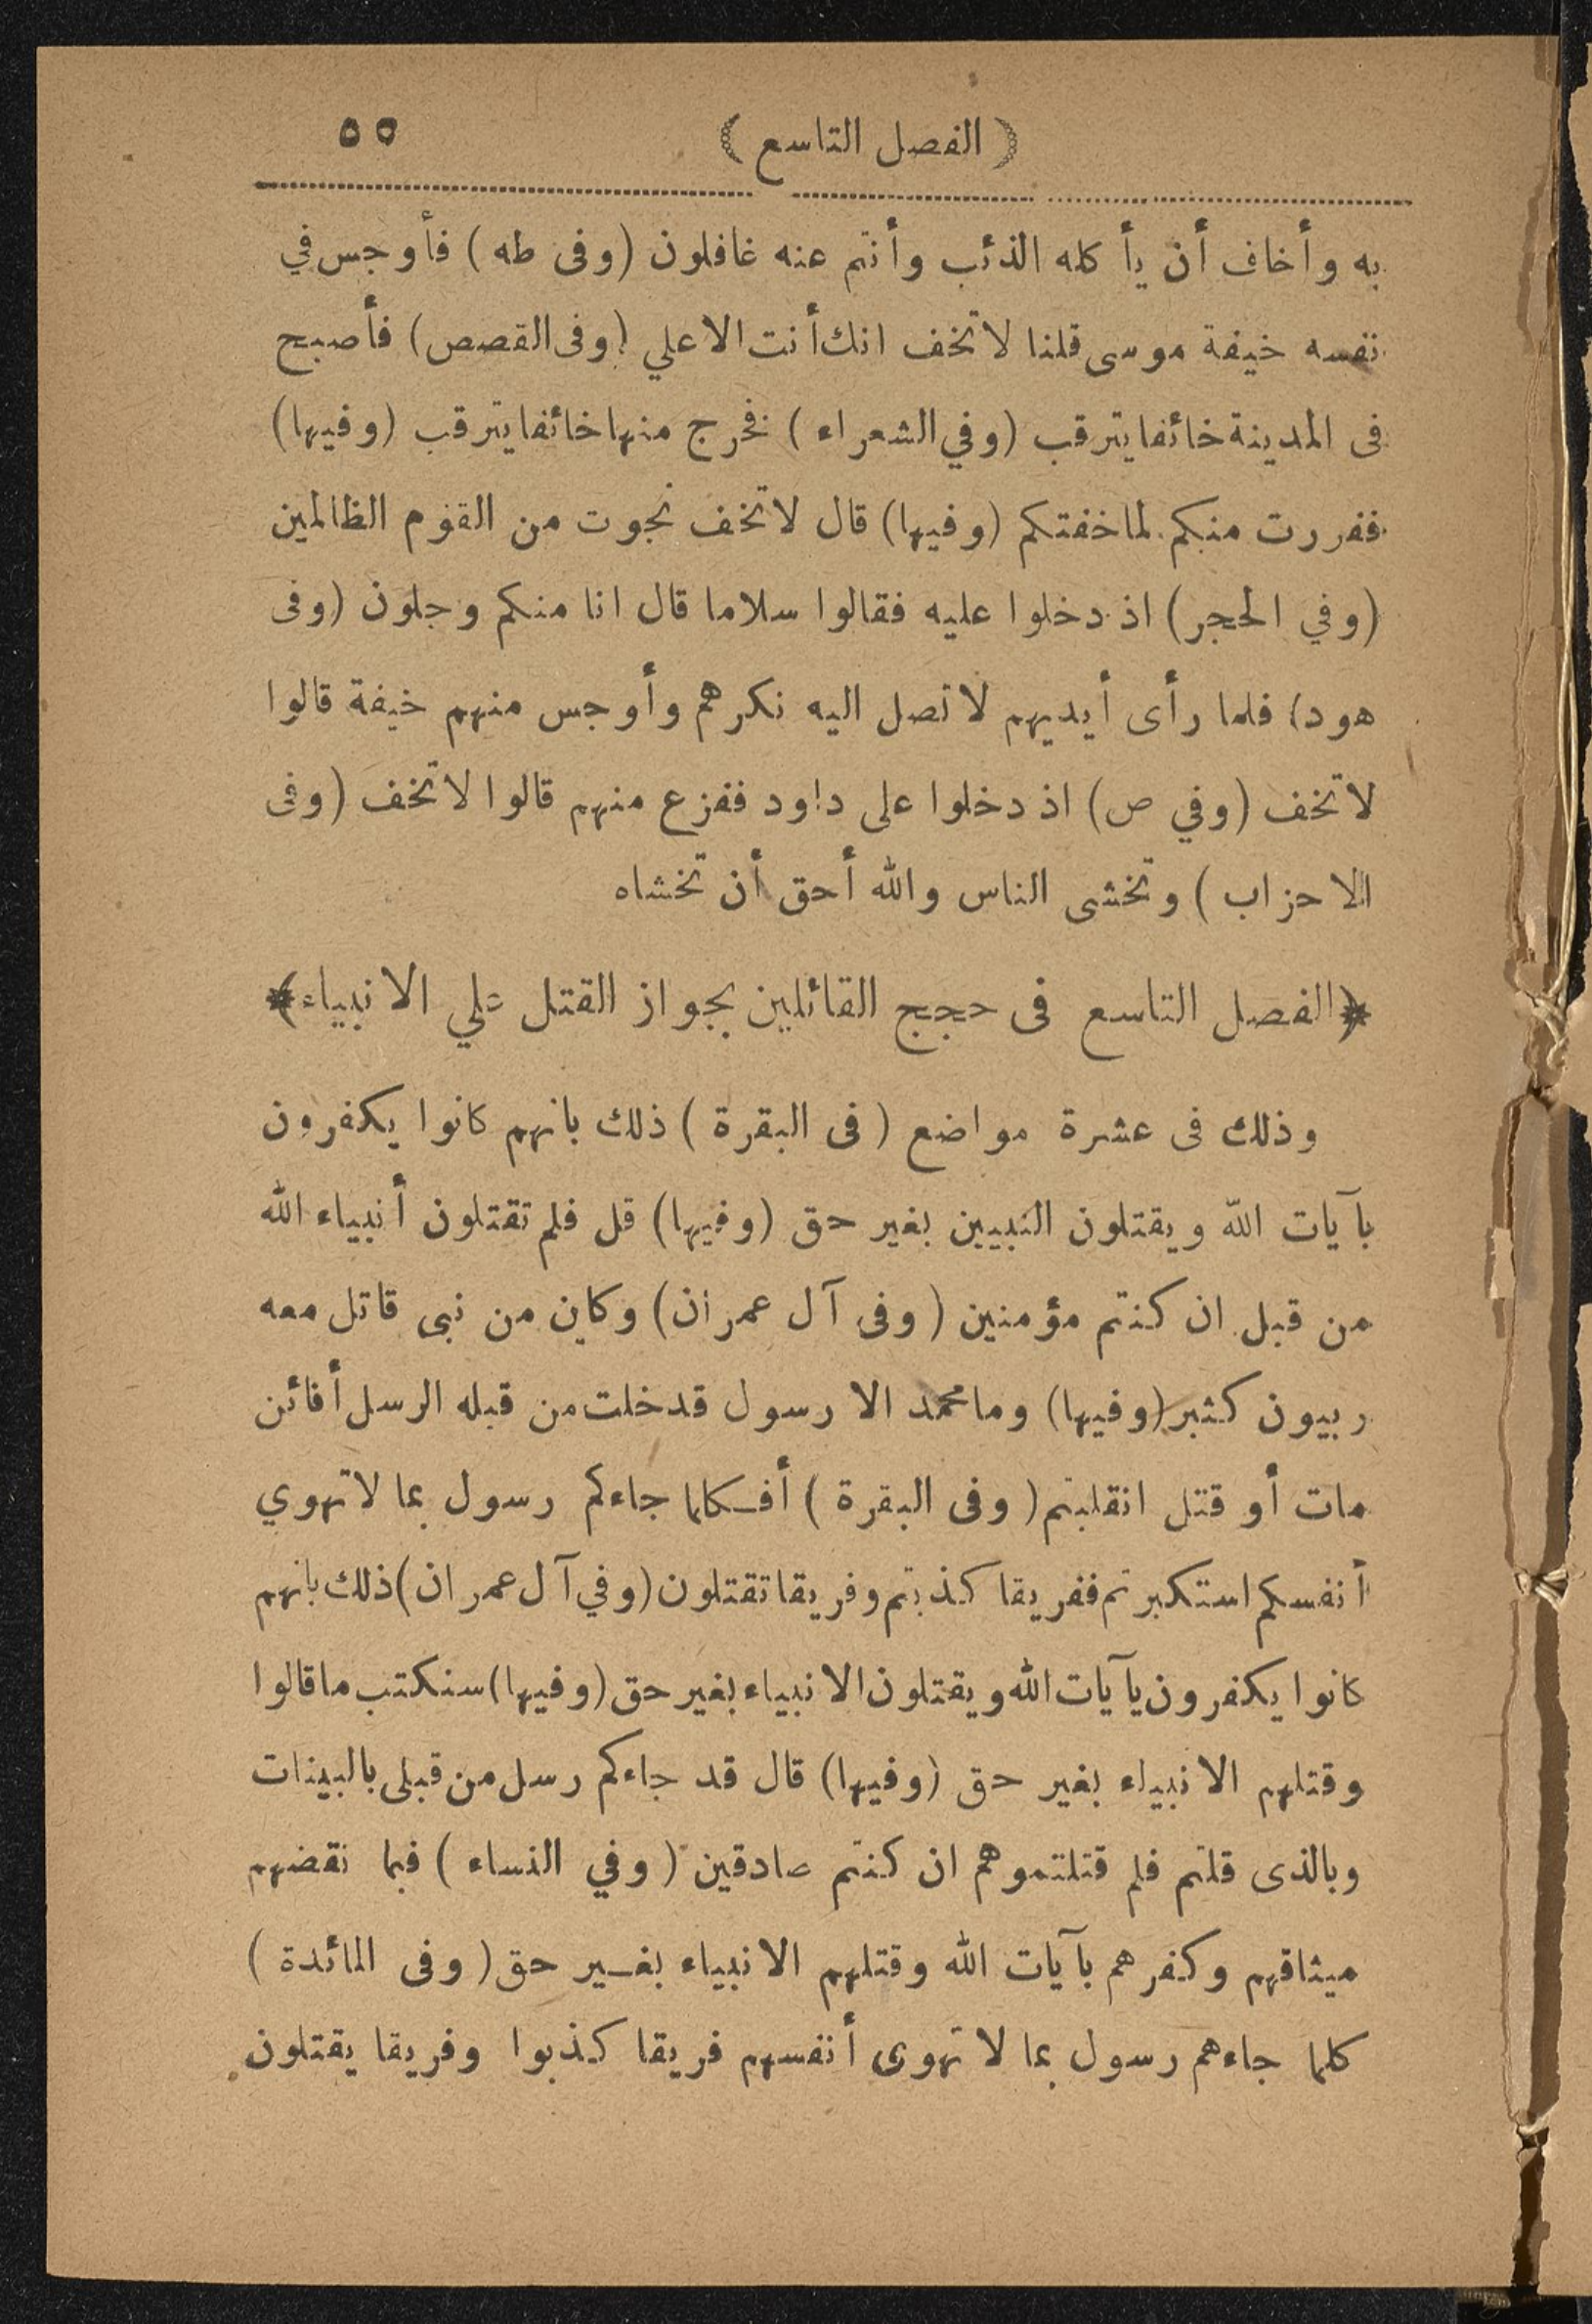 (الفصل التاسع) ٥٥
به وأخاف أن يأكله الذئب وأنتم عنه غافلون (وفى طه) فأوجس في
نفسه خيفة موسى قلنا لا تخف انك أنت الاعلي (وفى القصص) فأصبح
فى المدينة خائفا يترقب (وفي الشعراء) فخرج منها خائفا يترقب (وفيها)
ففررت منكم لما خفتكم (وفيها) قال لا تخف نجوت من القوم الظالمين
(وفي الحجر) اذ دخلوا عليه فقالوا سلاما قال انا منكم وجلون (وفى
هود) فلما رأى أيديهم لا تصل اليه نكرهم وأوجس منهم خيفة قالوا
لا تخف (وفي ص) اذ دخلوا على داود ففزع منهم قالوا لا تخف (وفى
الاحزاب) وتخشى الناس والله أحق أن تخشاه
﴿الفصل التاسع فى حجج القائلين بجواز القتل علي الانبياء﴾
وذلك فى عشرة مواضع (فى البقرة) ذلك بانهم كانوا يكفرون
بآيات الله ويقتلون النبيين بغير حق (وفيها) قل فلم تقتلون أنبياء الله
من قبل ان كنتم مؤمنين (وفى آل عمران) وكاين من نبى قاتل معه
ربيون كثير (وفيها) وما محمد الا رسول قد خلت من قبله الرسل أفائن
مات أو قتل انقلبتم (وفى البقرة) أفكلما جاءكم رسول بما لا تهوي
أنفسكم استكبرتم ففريقا كذبتم وفريقا تقتلون (وفي آل عمران) ذلك بانهم
كانوا يكفرون بآيات الله ويقتلون الانبياء بغير حق (وفيها) سنكتب ما قالوا
وقتلهم الانبياء بغير حق (وفيها) قال قد جاءكم رسل من قبلى بالبينات
وبالذى قلتم فلم قتلتموهم ان كنتم صادقين (وفي النساء) فبما نقضهم
ميثاقهم وكفرهم بآيات الله وقتلهم الانبياء بغير حق (وفى المائدة)
كلما جاءهم رسول بما لا تهوى أنفسهم فريقا كذبوا وفريقا يقتلون